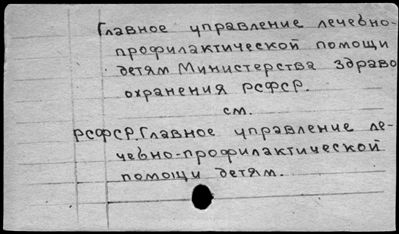 Главное управление лечебно-
профилактической помощи
детям Министерства здраво
охранения РСФСР.
см.
РСФСР. Главное управление ле-
чебно-профилактической
помощи детям.